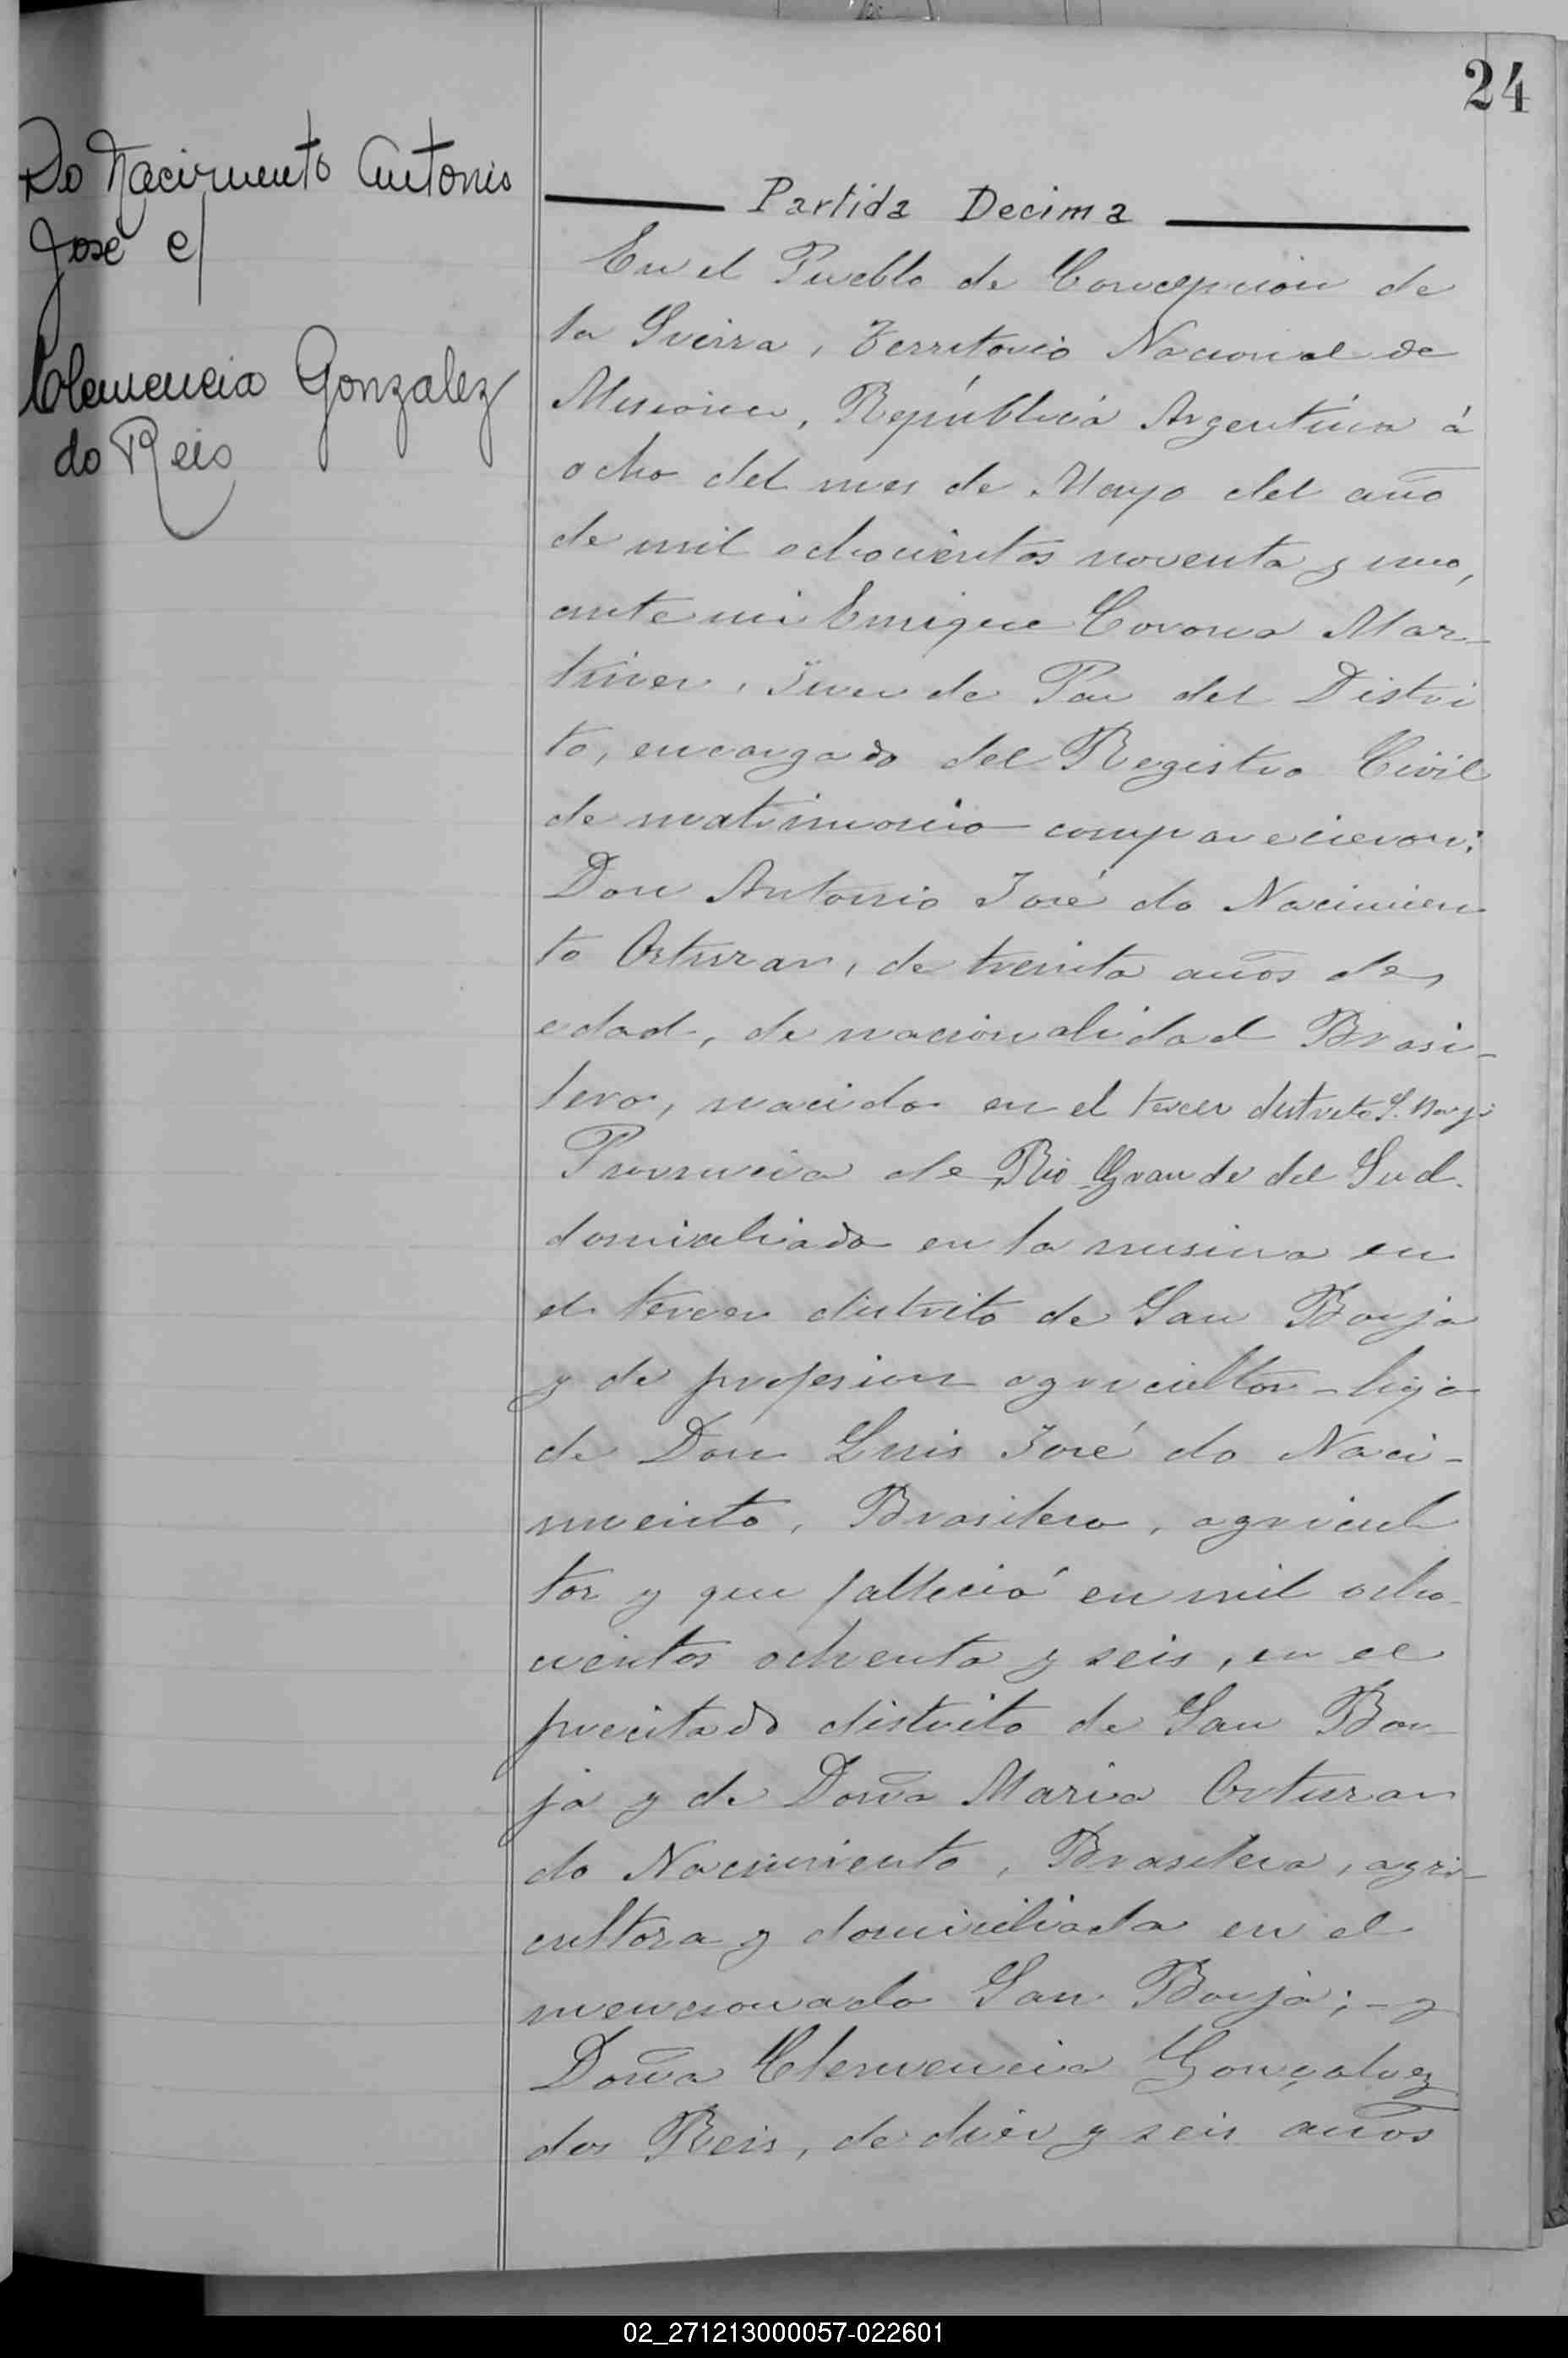 24
Do Nacimento Antonio
José c/
Clemencia Gonzalez
do Reis
Partida Decima
En el Pueblo de Concepcion de
la Sierra, Territorio Nacional de
Misiones, República Argentina á
ocho del mes de Mayo del año
de mil ochocientos noventa y uno,
ante mi Enrique Corona Mar-
tinez, Juez de Paz del Distri
to, encargado del Registro Civil
de matrimonio comparecieron:
Don Antonio José do Nacimien
to Orturar, de treinta años de
edad, de nacionalidad Brasi-
lero, nacido en el tercer distrito S. Borja
Provincia de Rio Grande del Sud.
domiciliado en la misma en
el tercer distrito de San Borja
y de profesion agricultor - hijo
de Don Luis José do Naci-
miento, Brasilero, agricul
tor y que falleció en mil ocho
cientos ochenta y seis, en el
precitado distrito de San Bor
ja y de Doña Maria Orturar
do Nacimiento, Brasilera, agri-
cultora y domiciliada en el
mencionado San Borja; - y
Doña Clemencia Gonçalvez
dos Reis, de diez y seis años
02_271213000057-022601